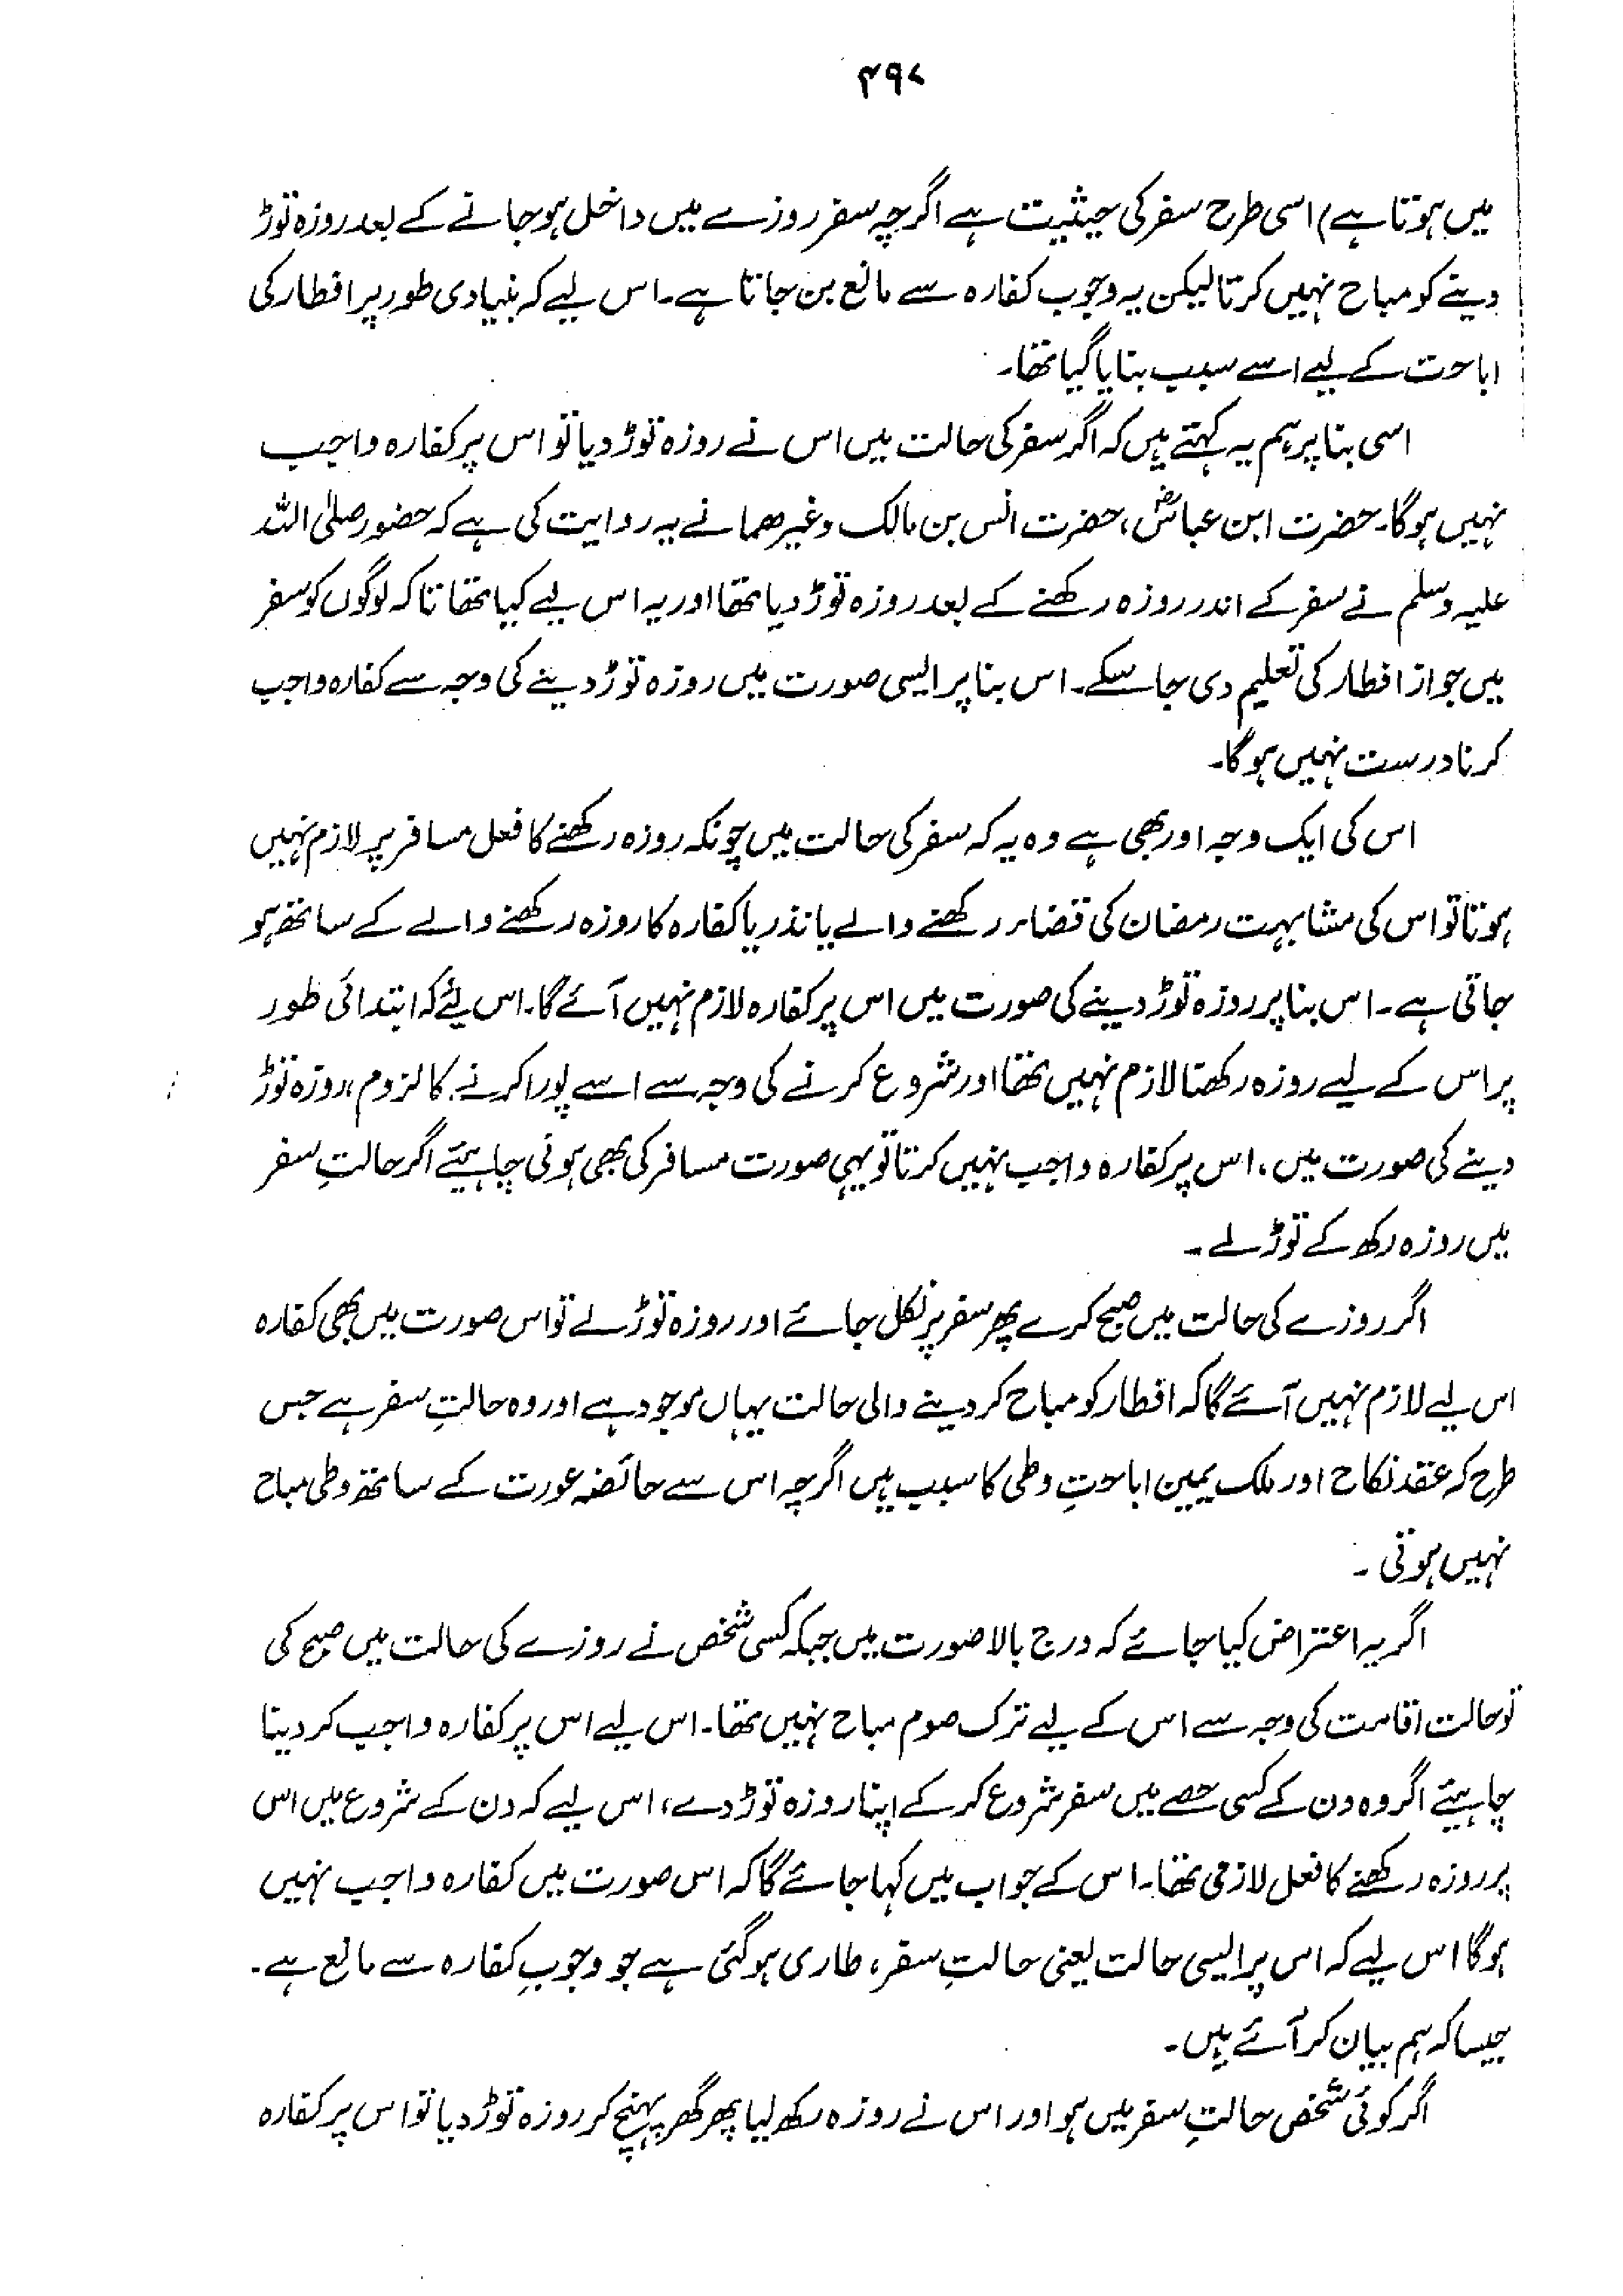 ۴۹۷
میں ہوتا ہے) اسی طرح سفر کی حیثیت ہے اگرچہ سفر روزے میں داخل ہو جانے کے بعد روزہ توڑ
دینے کو مباح نہیں کرتا لیکن یہ وجوب کفارہ سے مانع بن جاتا ہے۔ اس لیے کہ بنیادی طور پر افطار کی
اباحت کے لیے اسے سبب بنایا گیا تھا۔
اسی بنا پر ہم یہ کہتے ہیں کہ اگر سفر کی حالت میں اس نے روزہ توڑ دیا تو اس پر کفارہ واجب
نہیں ہوگا۔ حضرت ابن عباسؓ، حضرت انس بن مالک وغیرھما نے یہ روایت کی ہے کہ حضور صلی اللہ
علیہ وسلم نے سفر کے اندر روزہ رکھنے کے بعد روزہ توڑ دیا تھا اور یہ اس لیے کیا تھا تاکہ لوگوں کو سفر
میں جواز افطار کی تعلیم دی جا سکے۔ اس بنا پر ایسی صورت میں روزہ توڑ دینے کی وجہ سے کفارہ واجب
کرنا درست نہیں ہوگا۔
اس کی ایک وجہ اور بھی ہے وہ یہ کہ سفر کی حالت میں چونکہ روزہ رکھنے کا فعل مسافر پر لازم نہیں
ہوتا تو اس کی مشابہت رمضان کی قضاء رکھنے والے یا نذر یا کفارہ کا روزہ رکھنے والے کے ساتھ ہو
جاتی ہے۔ اس بنا پر روزہ توڑ دینے کی صورت میں اس پر کفارہ لازم نہیں آئے گا۔ اس لئے کہ ابتدائی طور
پر اس کے لیے روزہ رکھنا لازم نہیں تھا اور شروع کرنے کی وجہ سے اسے پورا کرنے کا لزوم، روزہ توڑ
دینے کی صورت میں، اس پر کفارہ واجب نہیں کرتا تو یہی صورت مسافر کی بھی ہونی چاہیئے اگر حالتِ سفر
میں روزہ رکھ کے توڑ لے۔
اگر روزے کی حالت میں صبح کرے پھر سفر پر نکل جائے اور روزہ توڑ لے تو اس صورت میں بھی کفارہ
اس لیے لازم نہیں آئے گا کہ افطار کو مباح کر دینے والی حالت یہاں موجود ہے اور وہ حالتِ سفر ہے جس
طرح کہ عقد نکاح اور ملک یمین اباحتِ وطی کا سبب ہیں اگرچہ اس سے حائضہ عورت کے ساتھ وطی مباح
نہیں ہوتی۔
اگر یہ اعتراض کیا جائے کہ درج بالا صورت میں جبکہ کسی شخص نے روزے کی حالت میں صبح کی
تو حالت اقامت کی وجہ سے اس کے لیے ترک صوم مباح نہیں تھا۔ اس لیے اس پر کفارہ واجب کر دینا
چاہیئے اگر وہ دن کے کسی حصے میں سفر شروع کر کے اپنا روزہ توڑ دے، اس لیے کہ دن کے شروع میں اس
پر روزہ رکھنے کا فعل لازمی تھا۔ اس کے جواب میں کہا جائے گا کہ اس صورت میں کفارہ واجب نہیں
ہوگا اس لیے کہ اس پر ایسی حالت یعنی حالتِ سفر، طاری ہوگئی ہے جو وجوبِ کفارہ سے مانع ہے۔
جیسا کہ ہم بیان کر آئے ہیں۔
اگر کوئی شخص حالتِ سفر میں ہو اور اس نے روزہ رکھ لیا پھر گھر پہنچ کر روزہ توڑ دیا تو اس پر کفارہ